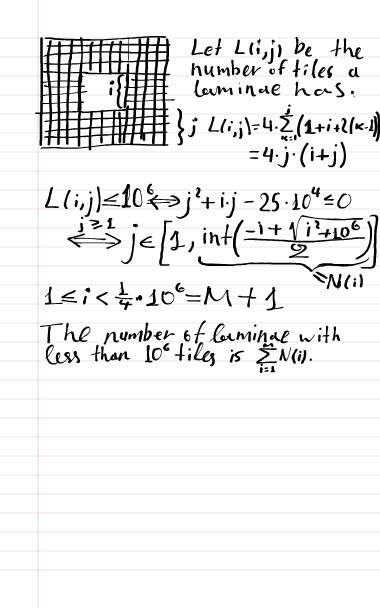 Let L(i,j) be the
number of tiles a
laminae has.
i{
}j L(i,j)=4·∑_{k=1}^{j}(1+i+2(k-1))
=4·j·(i+j)
L(i,j)≤10⁶⟺j²+i·j-25·10⁴≤0
⟺^{j≥1} j∈[1, int((-i+√(i²+10⁶))/2)]
=N(i)
1≤i<¼·10⁶=M+1
The number of laminae with
less than 10⁶ tiles is ∑_{i=1}^{M} N(i).